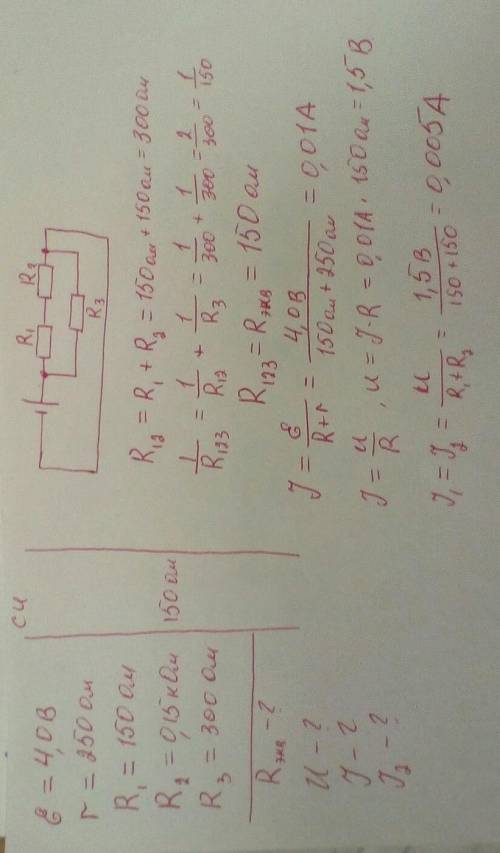 СИ
ℰ = 4,0 В
r = 250 Ом
R₁ = 150 Ом
R₂ = 0,15 кОм 150 Ом
R₃ = 300 Ом
Rэкв - ?
U - ?
J - ?
J₂ - ?
R₁ R₂
R₃
R₁₂ = R₁ + R₂ = 150 Ом + 150 Ом = 300 Ом
1/R₁₂₃ = 1/R₁₂ + 1/R₃ = 1/300 + 1/300 = 2/300 = 1/150
R₁₂₃ = Rэкв = 150 Ом
J = ℰ/(R+r) = 4,0 В/(150 Ом + 250 Ом) = 0,01 А
J = U/R , U = J · R = 0,01 А · 150 Ом = 1,5 В
J₁ = J₂ = U/(R₁+R₂) = 1,5 В/(150 + 150) = 0,005 А